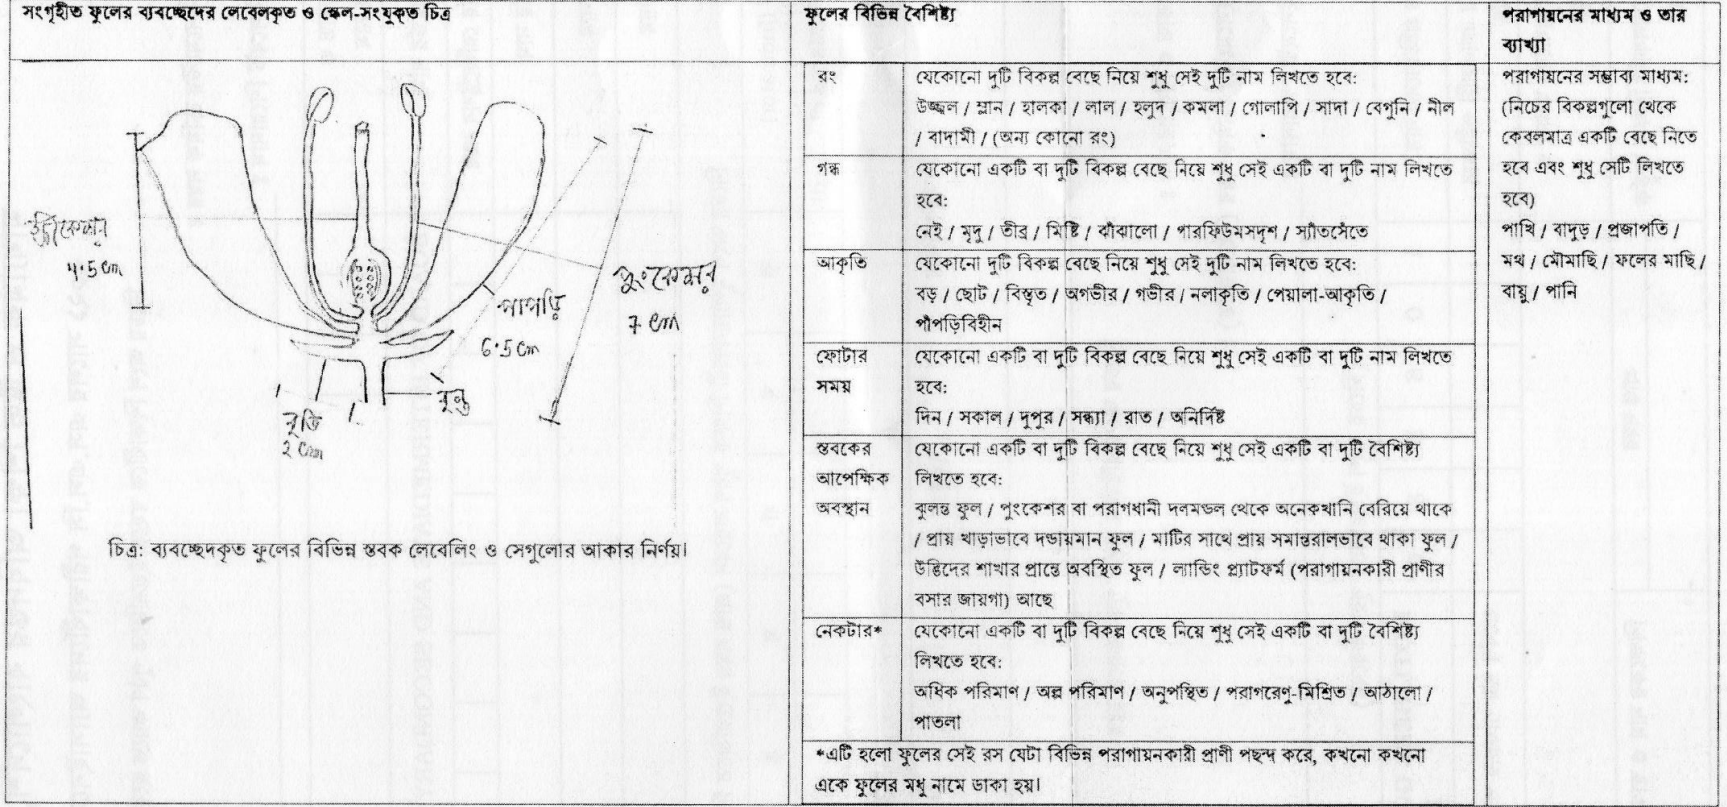 সংগৃহীত ফুলের ব্যবচ্ছেদের লেবেলকৃত ও স্কেল-সংযুক্ত চিত্র
স্ত্রীকেশর
4.5 cm
পাপড়ি
6.5 cm
পুংকেশর
7 cm
বৃতি
2 cm
বৃন্ত
চিত্র: ব্যবচ্ছেদকৃত ফুলের বিভিন্ন স্তবক লেবেলিং ও সেগুলোর আকার নির্ণয়।
ফুলের বিভিন্ন বৈশিষ্ট্য
রং
যেকোনো দুটি বিকল্প বেছে নিয়ে শুধু সেই দুটি নাম লিখতে হবে:
উজ্জ্বল / ম্লান / হালকা / লাল / হলুদ / কমলা / গোলাপি / সাদা / বেগুনি / নীল
/ বাদামী / (অন্য কোনো রং)
গন্ধ
যেকোনো একটি বা দুটি বিকল্প বেছে নিয়ে শুধু সেই একটি বা দুটি নাম লিখতে
হবে:
নেই / মৃদু / তীব্র / মিষ্টি / ঝাঁঝালো / পারফিউমসদৃশ / স্যাঁতসেঁতে
আকৃতি
যেকোনো দুটি বিকল্প বেছে নিয়ে শুধু সেই দুটি নাম লিখতে হবে:
বড় / ছোট / বিস্তৃত / অগভীর / গভীর / নলাকৃতি / পেয়ালা-আকৃতি /
পাঁপড়িবিহীন
ফোটার
সময়
যেকোনো একটি বা দুটি বিকল্প বেছে নিয়ে শুধু সেই একটি বা দুটি নাম লিখতে
হবে:
দিন / সকাল / দুপুর / সন্ধ্যা / রাত / অনির্দিষ্ট
স্তবকের
আপেক্ষিক
অবস্থান
যেকোনো একটি বা দুটি বিকল্প বেছে নিয়ে শুধু সেই একটি বা দুটি বৈশিষ্ট্য
লিখতে হবে:
ঝুলন্ত ফুল / পুংকেশর বা পরাগধানী দলমন্ডল থেকে অনেকখানি বেরিয়ে থাকে
/ প্রায় খাড়াভাবে দন্ডায়মান ফুল / মাটির সাথে প্রায় সমান্তরালভাবে থাকা ফুল /
উদ্ভিদের শাখার প্রান্তে অবস্থিত ফুল / ল্যান্ডিং প্ল্যাটফর্ম (পরাগায়নকারী প্রাণীর
বসার জায়গা) আছে
নেকটার*
যেকোনো একটি বা দুটি বিকল্প বেছে নিয়ে শুধু সেই একটি বা দুটি বৈশিষ্ট্য
লিখতে হবে:
অধিক পরিমান / অল্প পরিমাণ / অনুপস্থিত / পরাগরেণু-মিশ্রিত / আঠালো /
পাতলা
*এটি হলো ফুলের সেই রস যেটা বিভিন্ন পরাগায়নকারী প্রাণী পছন্দ করে, কখনো কখনো
একে ফুলের মধু নামে ডাকা হয়।
পরাগায়নের মাধ্যম ও তার
ব্যাখ্যা
পরাগায়নের সম্ভাব্য মাধ্যম:
(নিচের বিকল্পগুলো থেকে
কেবলমাত্র একটি বেছে নিতে
হবে এবং শুধু সেটি লিখতে
হবে)
পাখি / বাদুড় / প্রজাপতি /
মথ / মৌমাছি / ফলের মাছি /
বায়ু / পানি